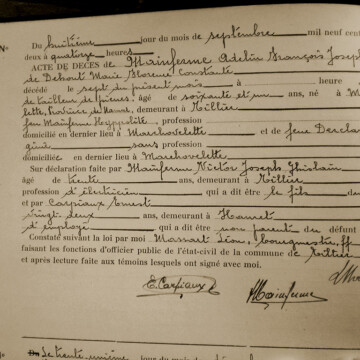 N°
Du huitième jour du mois de septembre mil neuf cent
deux à quatorze heures
ACTE DE DÉCÈS de Mainferme Adelin François Joseph
de Debout Marie Florence Constante
décédé le sept du présent mois à heure
âgé de soixante et un ans, né à M
lette, Province de Namur, demeurant à Rillier
feu Mainferme Hyppolite, profession
domicilié en dernier lieu à Marchovelette et de feue
sans profession
domiciliée en dernier lieu à Marchovelette
Sur déclaration faite par Mainferme Victor Joseph Ghislain
âgé de trente ans, demeurant à Rillier
profession d'électricien qui a dit être le fils du
et par Carpiaux Ernest
vingt deux ans, demeurant à Hamet
d'employé qui a dit être non parent du défunt
Constaté suivant la loi par moi Massart Léon, bourgmestre, ff
faisant les fonctions d'officier public de l'état-civil de la commune de Rillier
et après lecture faite aux témoins lesquels ont signé avec moi.
E. Carpiaux
Mainferme
Le trente-unième jour du mois de